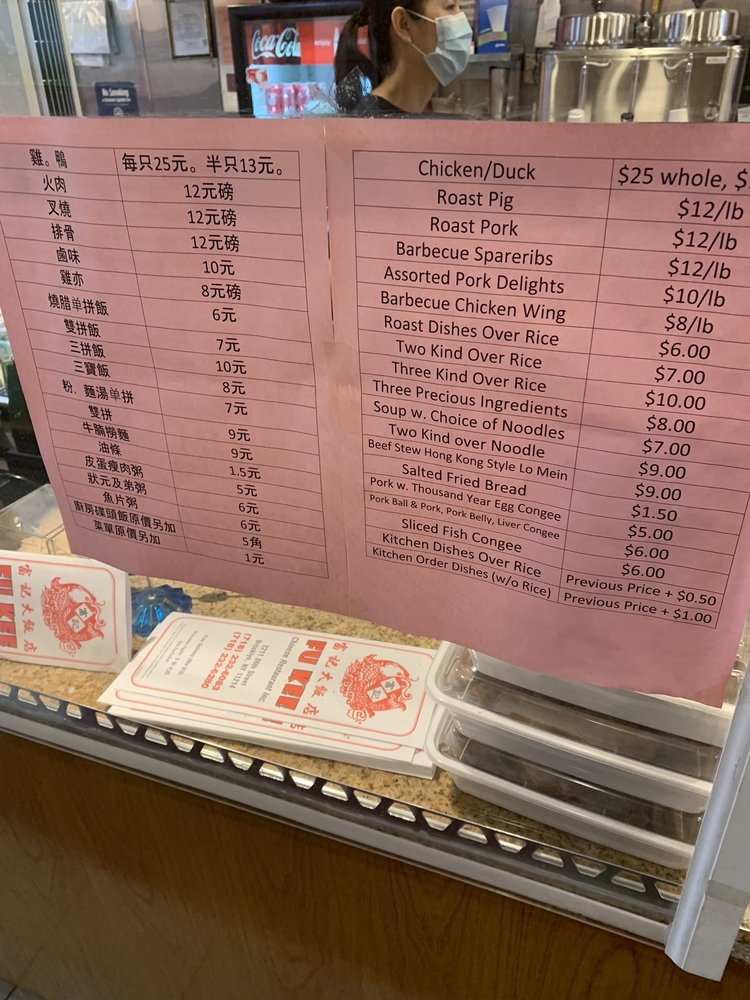 Coca-Cola
No Smoking
雞。鴨 每只25元。半只13元。
火肉 12元磅
叉燒 12元磅
排骨 12元磅
鹵味 10元
雞亦 8元磅
燒腊单拼飯 6元
雙拼飯 7元
三拼飯 10元
三寶飯 8元
粉，麵湯单拼 7元
雙拼 9元
牛腩撈麵 9元
油條 1.5元
皮蛋瘦肉粥 5元
狀元及弟粥 6元
魚片粥 6元
廚房碟頭飯原價另加 5角
菜單原價另加 1元
Chicken/Duck $25 whole, $
Roast Pig $12/lb
Roast Pork $12/lb
Barbecue Spareribs $12/lb
Assorted Pork Delights $10/lb
Barbecue Chicken Wing $8/lb
Roast Dishes Over Rice $6.00
Two Kind Over Rice $7.00
Three Kind Over Rice $10.00
Three Precious Ingredients $8.00
Soup w. Choice of Noodles $7.00
Two Kind over Noodle $9.00
Beef Stew Hong Kong Style Lo Mein $9.00
Salted Fried Bread $1.50
Pork w. Thousand Year Egg Congee $5.00
Pork Ball & Pork, Pork Belly, Liver Congee $6.00
Sliced Fish Congee $6.00
Kitchen Dishes Over Rice Previous Price + $0.50
Kitchen Order Dishes (w/o Rice) Previous Price + $1.00
富記大飯店
FU KEE
富記大飯店
FU KEE
Chinese Restaurant Inc
2211 86th Street
Brooklyn, NY 11214
(718) 232-6083
(718) 232-6280